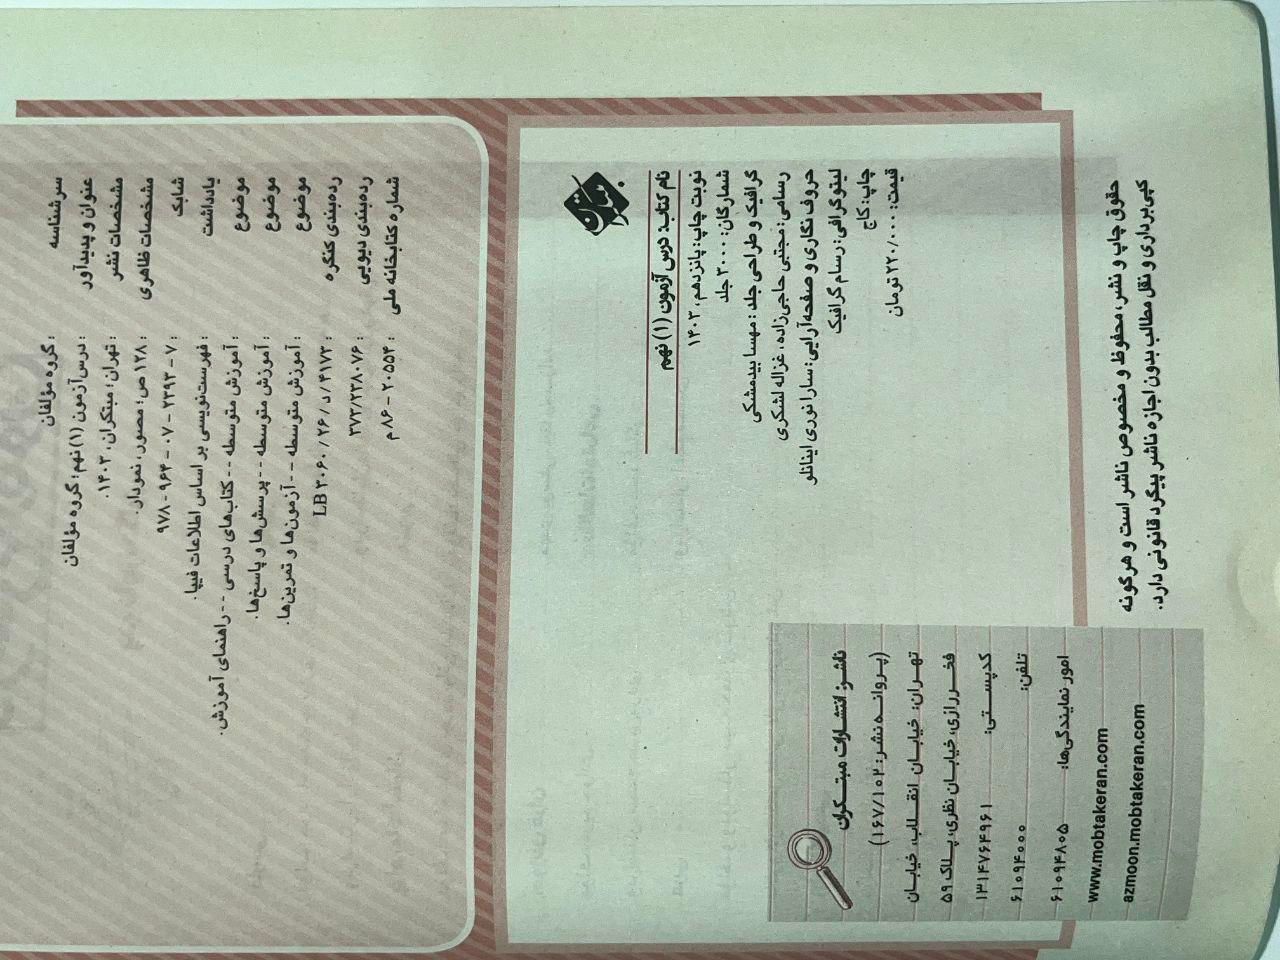 سرشناسه : گروه مؤلفان
عنوان و پدیدآور : درس آزمون (۱) نهم؛ گروه مؤلفان
مشخصات نشر : تهران؛ مبتکران، ۱۴۰۳.
مشخصات ظاهری : ۱۲۸ ص؛ مصور، نمودار.
شابک : ۷ - ۲۲۹۳ - ۰۷ - ۹۶۴ - ۹۷۸
یادداشت : فهرست‌نویسی بر اساس اطلاعات فیپا.
موضوع : آموزش متوسطه - - کتاب‌های درسی - - راهنمای آموزش.
موضوع : آموزش متوسطه - - پرسش‌ها و پاسخ‌ها.
موضوع : آموزش متوسطه - - آزمون‌ها و تمرین‌ها.
رده‌بندی کنگره : LB ۳۰۶۰ / ۲۶ / د / ۴۱۷۳
رده‌بندی دیویی : ۳۷۳/۲۳۸۰۷۶
شماره کتابخانه ملی : ۲۰۵۵۴ - ۸۶ م
مبتکران
نام کتاب: درس آزمون (۱) نهم
نوبت چاپ: پانزدهم، ۱۴۰۳
شمارگان: ۳۰۰۰ جلد
گرافیک و طراحی جلد: مهسا بیدمشکی
رسامی: مجتبی حاجی‌زاده، غزاله لشکری
حروف نگاری و صفحه‌آرایی: سارا نوری اینانلو
لیتوگرافی: رسام گرافیک
چاپ: کاج
قیمت: ۲۲۰/۰۰۰ تومان
ناشر: انتشارات مبتکران
(پروانه نشر: ۱۶۷/۱۰۲)
تهران: خیابان انقلاب، خیابان
فخررازی، خیابان نظری، پلاک ۵۹
کدپستی: ۱۳۱۴۷۶۴۹۶۱
تلفن: ۶۱۰۹۴۰۰۰
امور نمایندگی‌ها: ۶۱۰۹۴۸۰۵
www.mobtakeran.com
azmoon.mobtakeran.com
حقوق چاپ و نشر، محفوظ و مخصوص ناشر است و هرگونه
کپی‌برداری و نقل مطالب بدون اجازه ناشر پیگرد قانونی دارد.